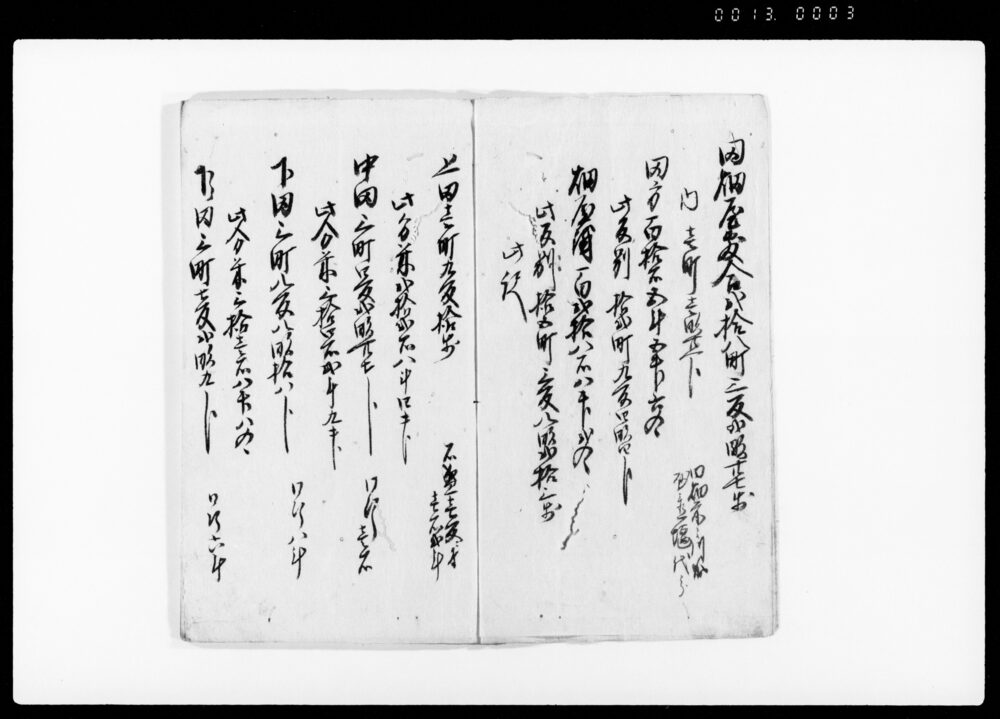 0013. 0003
田畑屋敷合弐拾八町三反弐畝廿七歩
内 壱町壱畝廿一卜
田方百拾石五斗五升六合
此反別 拾弐町九反四畝四卜
畑屋敷百弐拾八石八斗弐合
此反別 拾五町三反八畝弐拾三歩
此訳
上田壱町九反拾歩 石盛壱反ニ付壱石弐斗
此分米弐拾弐石八斗四升
中田三町四反弐畝廿七卜 同断壱石
此分米三拾四石弐斗九升
下田三町八反八畝拾八卜 同断八斗
此分米三拾壱石八升八合
下々田三町壱反弐畝九卜 同断六斗